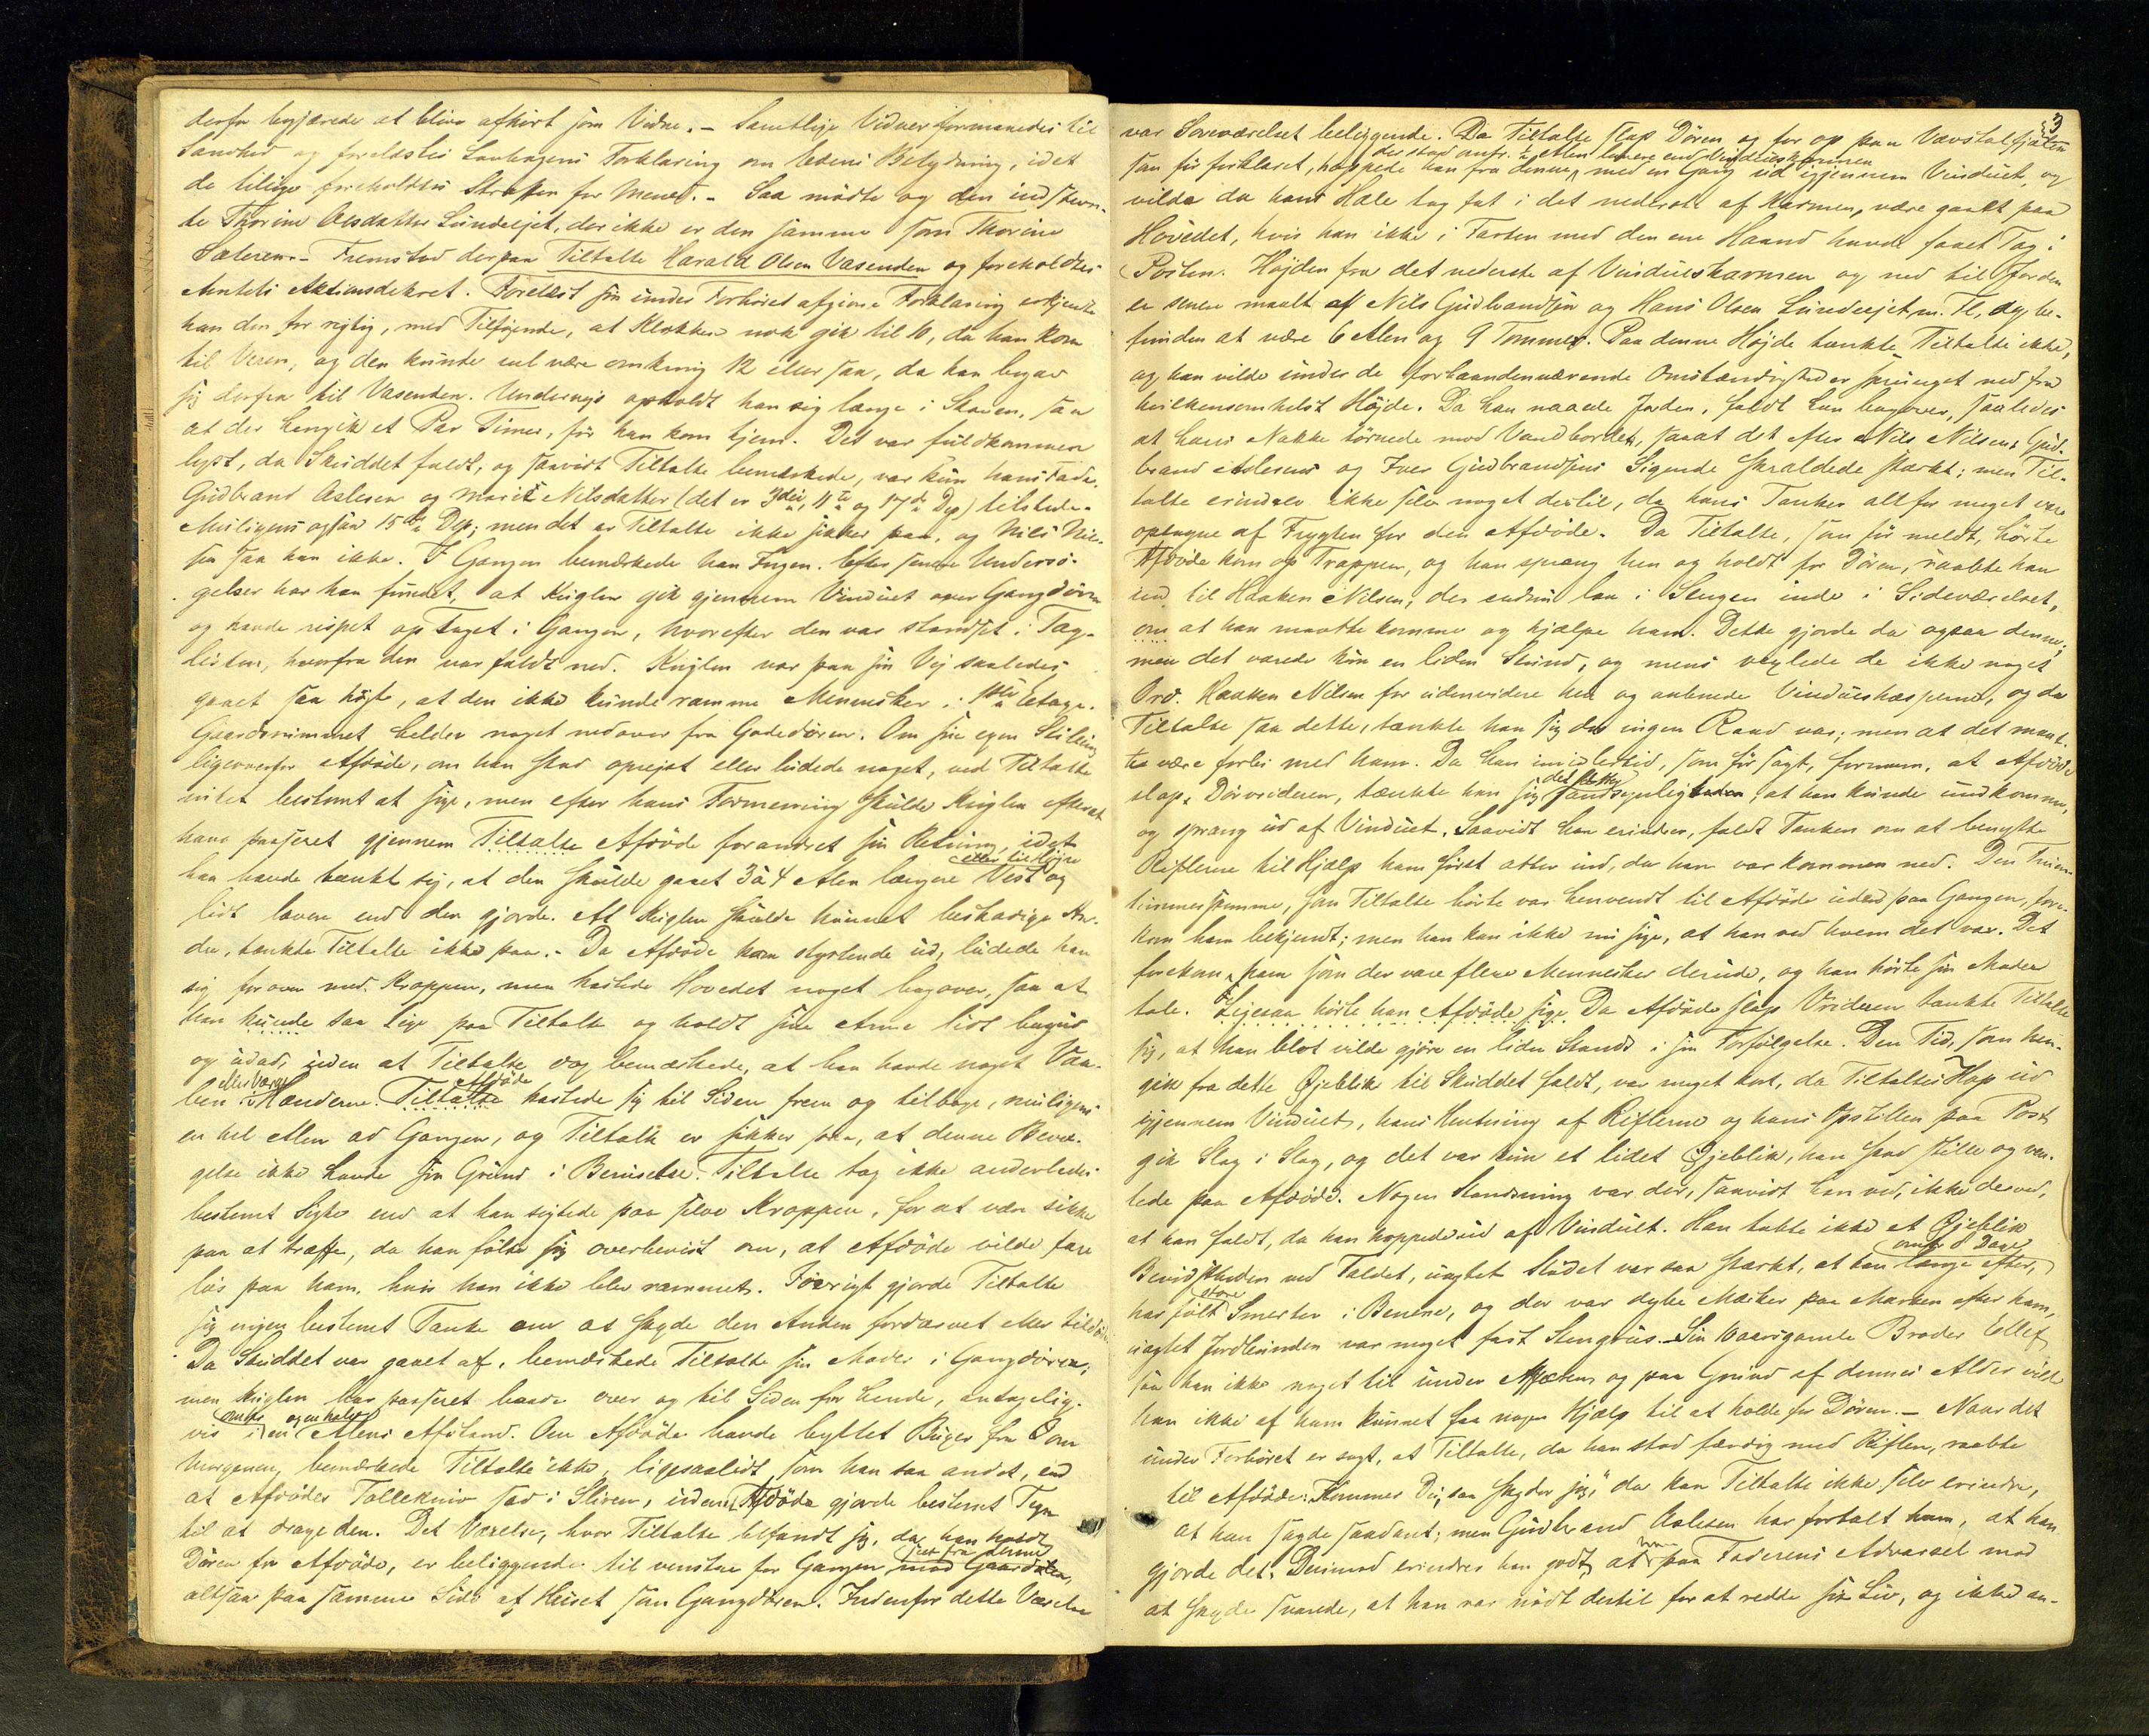 derfor begjærede at blive afhørt som Vidne. – Samtlige Vidner formanedes til
Sandhed og forelæstes Lovbogens Forklaring om Edens Betydning, idet
de tillige foreholdtes Straffen for Mened. – Saa mødte og den indstevn-
te Thorine Olsdatter Lundeejet, der ikke er den samme som Thorine
Sæteren. – Fremstod derpaa Tiltalte Harald Olsen Vasenden og foreholdtes
Amtets Aktionsdekret. Forelæst sin under Forhøret afgivne Forklaring erkjendte
han den for rigtig, med Tilføjende, at Klokken nok gik til 10, da han kom
til Veren, og den kunde vel være omkring 12 eller saa, da han begav
sig derfra til Vasenden. Underveis opholdt han sig længe i Skoven, saa
at der hengik et Par Timer, før han kom hjem. Det var fuldkommen
lyst, da Skuddet faldt, og saavidt Tiltalte bemærkede, var kun hans Fader,
Gudbrand Aslesen og Marit Nilsdatter (det er 3die, 11te og 17de Dep) tilstede.
Muligens ogsaa 15de Dep; men det er Tiltalte ikke sikker paa, og Nils Nil-
sen saa han ikke. I Gangen bemærkede han Ingen. Efter senere Undersø-
gelser har han fundet, at Kuglen gik gjennem Vinduet over Gangdøren
og havde rispet op Taget i Gangen, hvorefter den var standset i Tag-
listen, hvorfra den var faldt ned. Kuglen var paa sin Vej saaledes
gaaet saa højt, at den ikke kunde ramme Mennesker i 1ste Etage.
Gaardsrummet helder noget nedover fra Gadedøren. Om sin egen Stilling
ligeoverfor Afdøde, om han stod oprejst eller ludede noget, ved Tiltalte
intet bestemt at sige, men efter hans Formening skulde Kuglen efterat
have passeret gjennem Tiltalte Afdøde forandret sin Retning, idet
eller til Højre
han havde tænkt sig, at den skulde gaaet 3 à 4 Alen længere Vest og
lidt lavere end den gjorde. At Kuglen skulde kunnet beskadige An-
dre, tænkte Tiltalte ikke paa. – Da Afdøde kom styrtende ud, ludede han
sig forover med Kroppen, men kastede Hovedet noget bagover, saa at
han kunde saa lige paa Tiltalte og holdt sine Arme lidt bagud
og udad, uden at Tiltalte dog bemærkede, at han havde noget Vaa-
eller Værge afdøde
ben i Hænderne. Tiltalte kastede sig til Siden frem og tilbage, muligens
en hel Alen ad Gangen, og Tiltalte er sikker paa, at denne Bevæ-
gelse ikke havde sin Grund i Beruselse. Tiltalte tog ikke anderledes
bestemt Sigte end at han sigtede paa selve Kroppen, for at være sikker
paa at træffe, da han følte sig overbevist om, at Afdøde vilde fare
løs paa ham, hvis han ikke blev rammet. Forøvrigt gjorde Tiltalte
sig ingen bestemt Tanke om at skyde den Anden fordærvet eller tildøde
Da Skuddet var gaaet af, bemærkede Tiltalte sin Moder i Gangdøren;
men Kuglen har passeret baade over og til Siden for hende, antagelig-
omtr. og en halv
vis i en Alens Afstand. Om Afdøde havde byttet Buxer fra om
Morgenen, bemærkede Tiltalte ikke, ligesaalidt som han saa andet, end
at Afdødes Tollekniv sad i Sliren, uden Afdøde gjorde bestemt Tegn
til at drage den. Det Værelse, hvor Tiltalte befandt sig, da han holdt
set fra denne
Døren for Afdøde, er beliggende til venstre for Gangen mod Gaarden,
altsaa paa samme Side af Huset som Gangdøren. Indenfor dette Værelse
3
var Soveværelset beliggende. Da Tiltalte slap Døren og for op paa Vævstolfjælen
der stod omtr. ½ Alen lavere end Vindueskarmen
som før forklaret, hoppede han fra denne, med en Gang ud igjennem Vinduet, og
vilde da hans Hæle tog fat i det nederste af Karmen, være gaaet paa
Hovedet, hvis han ikke i Farten med den ene Haand havde faaet Tag i
Posten. Højden fra det nederste af Vindueskarmen og ned til Jorden
er senere maalt af Nils Gudbrandsen og Hans Olsen Lundeejet m. Fl. og be-
funden at være 6 Alen og 9 Tommer. Paa denne Højde tænkte Tiltalte ikke,
og han vilde under de forhaandenværende Omstændigheder sprunget ned fra
hvilkensomhelst Højde. Da han naaede Jorden, faldt han bagover, saaledes
at hans Nakke tørnede mod Vandbordet, saaat det efter Nils Nilsens, Gud-
brand Aslesens og Iver Gudbrandsens Sigende skraldede stærkt; men Til-
talte erindrer ikke selv noget dertil, da hans Tanker alt for meget vare
optagne af Frygten for den Afdøde. Da Tiltalte, som før meldt, hørte
Afdøde kom op Trappen, og han sprang hen og holdt for Døren, raabte han
ind til Haaken Nilsen, der endnu laa i Sengen inde i Sideværelset,
om at han maatte komme og hjælpe ham. Dette gjorde da ogsaa denne;
men det varede kun en liden Stund, og mens vexlede de ikke noget
Ord. Haaken Nilsen for udenvidere hen og aabnede Vindueshasperne, og da
Tiltalte saa dette, tænkte han sig der ingen Raad var; men at det maat-
te være forbi med ham. Da han imidlertid, som før sagt, fornam, at Afdøde
det
slap Dørvrideren, tænkte han sig sandsynligheden, at han kunde undkomme,
og sprang ud af Vinduet. Saavidt han erindrer, faldt Tanken om at benytte
Riflerne til Hjælp ham først atter ind, da han var kommen ned. Den Fruen-
timmerstemme, som Tiltalte hørte var henvendt til Afdøde ude paa Gangen, fore-
kom ham bekjendt; men han kan ikke nu sige, at han ved hvem det var. Det
forekom ham som der vare flere Mennesker derude, og han hørte sin Moder
tale. Ligesaa hørte han Afdøde sige. Da Afdøde slap Vrideren tænkte Tiltalte
sig, at han blot vilde gjøre en liden Stands i sin Forfølgelse. Den Tid, som hen-
gik fra dette Øjeblik til Skuddet faldt, var meget kort, da Tiltaltes Hop ud
gjennem Vinduet, hans Hentning af Riflerne og hans Opstillen paa Post
gik Slag i Slag, og det var kun et lidet Øjeblik, han stod stille og ven-
tede paa Afdøde. Nogen Standsning var der, saavidt han ved, ikke derved,
at han faldt, da han hoppede ud af Vinduet. Han tabte ikke et Øjeblik
omtr 8 Dage
Bevidstheden ved Faldet, uagtet Stødet var saa stærkt, at han længe efter,
store
har følt Smerter i Benene, og der var dybe Mærker paa Marken efter ham,
uagtet Jordbunden var meget fast Stengrus. – Sin aarsgamle Broder Ellef
saa han ikke noget til under Affæren og paa Grund af dennes Alder vilde
han ikke af ham kunnet faa nogen Hjælp til at holde for Døren. – Naar det
under Forhøret er sagt, at Tiltalte, da han stod færdig med Riflen, raabte
til Afdøde: Kommer Du, saa skyder jeg, da kan Tiltalte ikke selv erindre,
at han sagde saadant; men Gudbrand Aslesen har fortalt ham, at han
han
gjorde det. Derimod erindrer han godt, at paa Faderens Advarsel mod
at skyde svarede, at han var nødt dertil for at redde sit Liv, og ikke an-